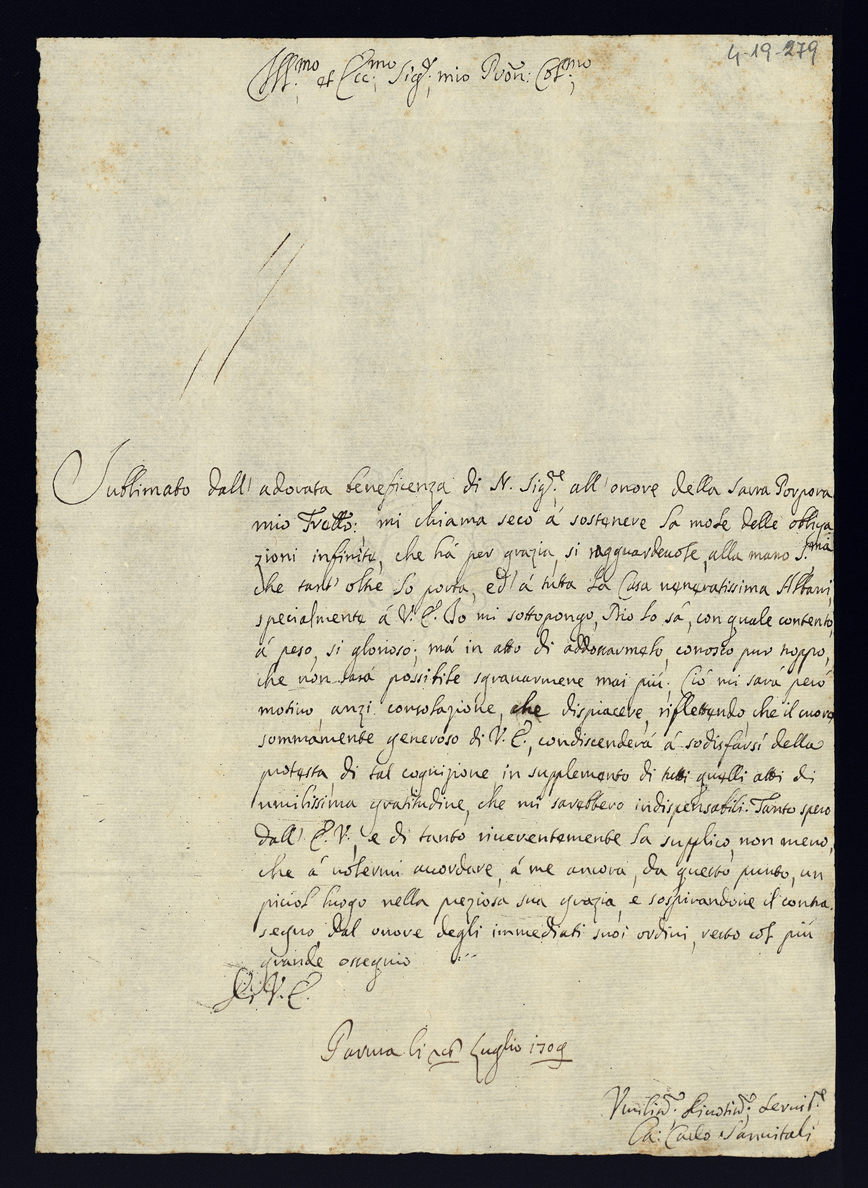 4-19-279
Ill:mo et Ecc:mo Sig:r mio Pron: Col:mo
Sublimato dall' adorata beneficenza di N. Sig:re all' onore della Sacra Porpora
mio Frello: mi chiama seco á sostenere la mole delle obliga
zioni infinite, che há per grazia, si ragguardeuole, alla mano S:ma
che tant' oltre lo porta, ed á tutta la Casa ueneratissima Albani,
specialmente á V. E. Io mi sottopongo, Dio lo sá, con quale contento,
á peso, si glorioso; má in atto di addossarmelo, conosco pur troppo,
che non sará possibile sgrauarmene mai piú; Ció mi sará peró
motiuo, anzi consolazione, che dispiacere, riflettendo, che il cuore
sommamente generoso di V. E., condiscenderá á sodisfarsi della
protesta di tal cognizione in supplemento di tutti quelli atti di
umilissima gratitudine, che mi sarebbero indispensabili. Tanto spero
dall' E. V., e di tanto riuerentemente la supplico, non meno,
che á uolermi accordare, á me ancora, da questo punto, un
picciol luogo nella preziosa sua grazia, e sospirandone il contra
segno dal onore degli immediati suoi ordini, resto col piú
grande ossequio
Di V. E.
Parma li Luglio 1709
Vmilis:o Diuotis:o Seruit:re
Carlo Sanuitali